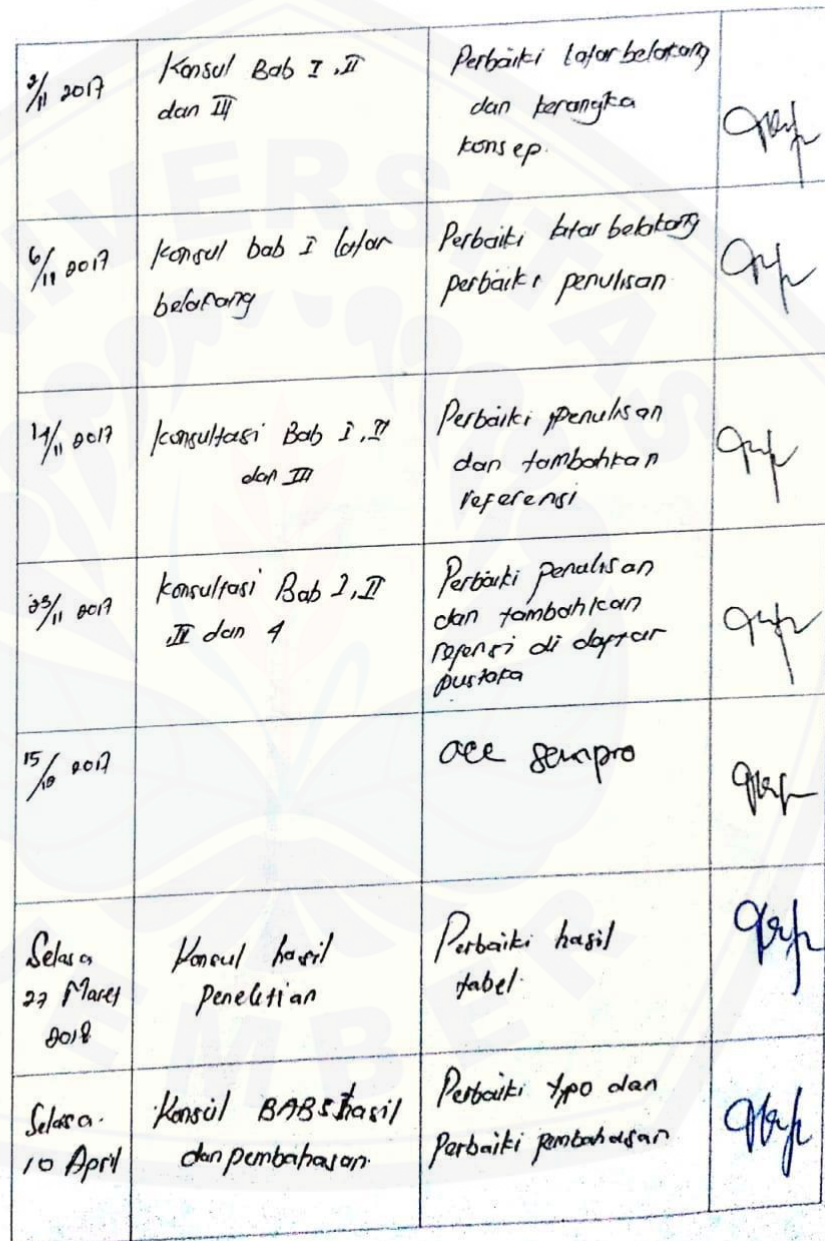 2/11 2017
Konsul Bab I, II
dan III
Perbaiki latar belakang
dan kerangka
konsep.
6/11 2017
konsul bab I latar
belakang
Perbaiki latar belakang
perbaiki penulisan
14/11 2017
konsultasi Bab I, II
dan III
Perbaiki penulisan
dan tambahkan
referensi
23/11 2017
konsultasi Bab I, II
III dan 4
Perbaiki penulisan
dan tambahkan
refensi di daftar
pustaka
15/12 2017
acc sempro
Selasa
27 Maret
2018
Konsul hasil
Penelitian
Perbaiki hasil
tabel.
Selasa.
10 April
Konsul BAB 5 hasil
dan pembahasan.
Perbaiki typo dan
Perbaiki pembahasan
UNIVERSITAS
JEMBER